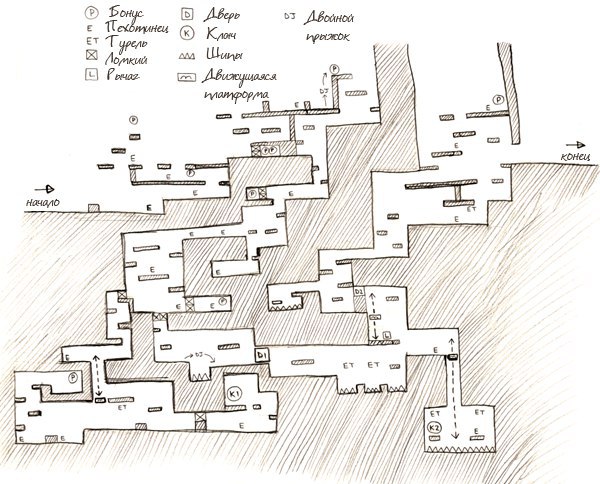 P Бонус
E Пехотинец
ET Турель
Ломкий
L Рычаг
D Дверь
K Ключ
Шипы
Движущаяся
платформа
DJ Двойной
прыжок
P
DJ
P
E
E
P
E
E
P
P P
E
конец
E
E
P
начало
E
P
E
E
ET
E
E
E
E
E
E
P
D2
L
DJ
D1
E
E
ET
ET
P
K1
ET
E
E
E
ET
ET
K2
E